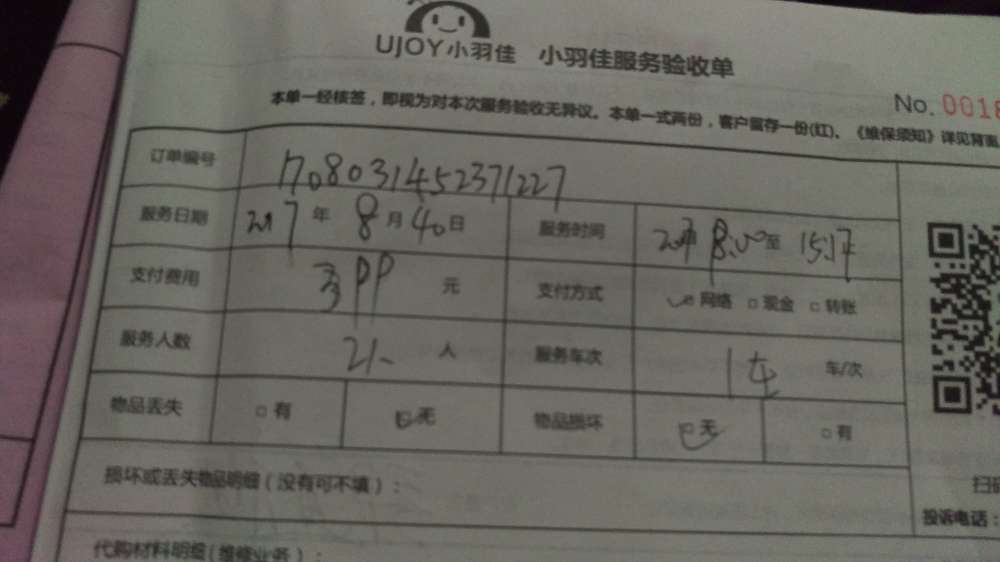 UJOY小羽佳 小羽佳服务验收单
No. 0018
本单一经核签，即视为对本次服务验收无异议。本单一式两份，客户留存一份(红)。《维保须知》详见背面
订单编号 1708031452371227
服务日期 2017年8月40日 服务时间 8:00至15:17
支付费用 元 支付方式 网络 □现金 □转账
服务人数 人 服务车次 1车 车/次
物品丢失 □有 □无 物品损坏 □无 □有
损坏或丢失物品明细（没有可不填）：
扫码
投诉电话：
代购材料明细（维修业务）：